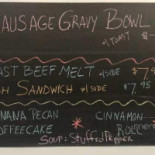 SAUSAGE GRAVY BOWL
& TOAST
AST BEEF MELT w/SIDE $7.
SH SANDWICH w/SIDE $7.95
NANA PECAN CINNAMON
COFFEECAKE ROLL
SOUP: STUFFED PEPPER